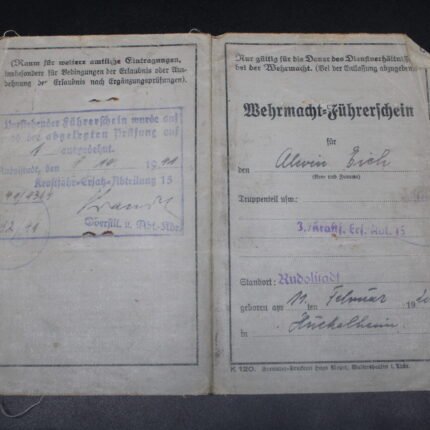 (Raum für weitere amtliche Eintragungen,
insbesondere für Bedingungen der Erlaubnis oder Aus-
dehnung der Erlaubnis nach Ergänzungsprüfungen).
Vorstehender Führerschein wurde auf
der abgelegten Prüfung auf
1 ausgedehnt.
Rudolstadt, den 10 1941
Kraftfahr-Ersatz-Abteilung 15
Oberstlt. u. Abt.-Kdr.
Nur gültig für die Dauer des Dienstverhältnis
bei der Wehrmacht. (Bei der Entlassung abzugeben)
Wehrmacht-Führerschein
für
den Alwin Eich
(Name und Zuname)
Truppenteil usw.:
3./Kraftf. Ers. Abt. 15
Standort: Rudolstadt
geboren am 11 ten Februar 19
in Hückelheim
K 120.